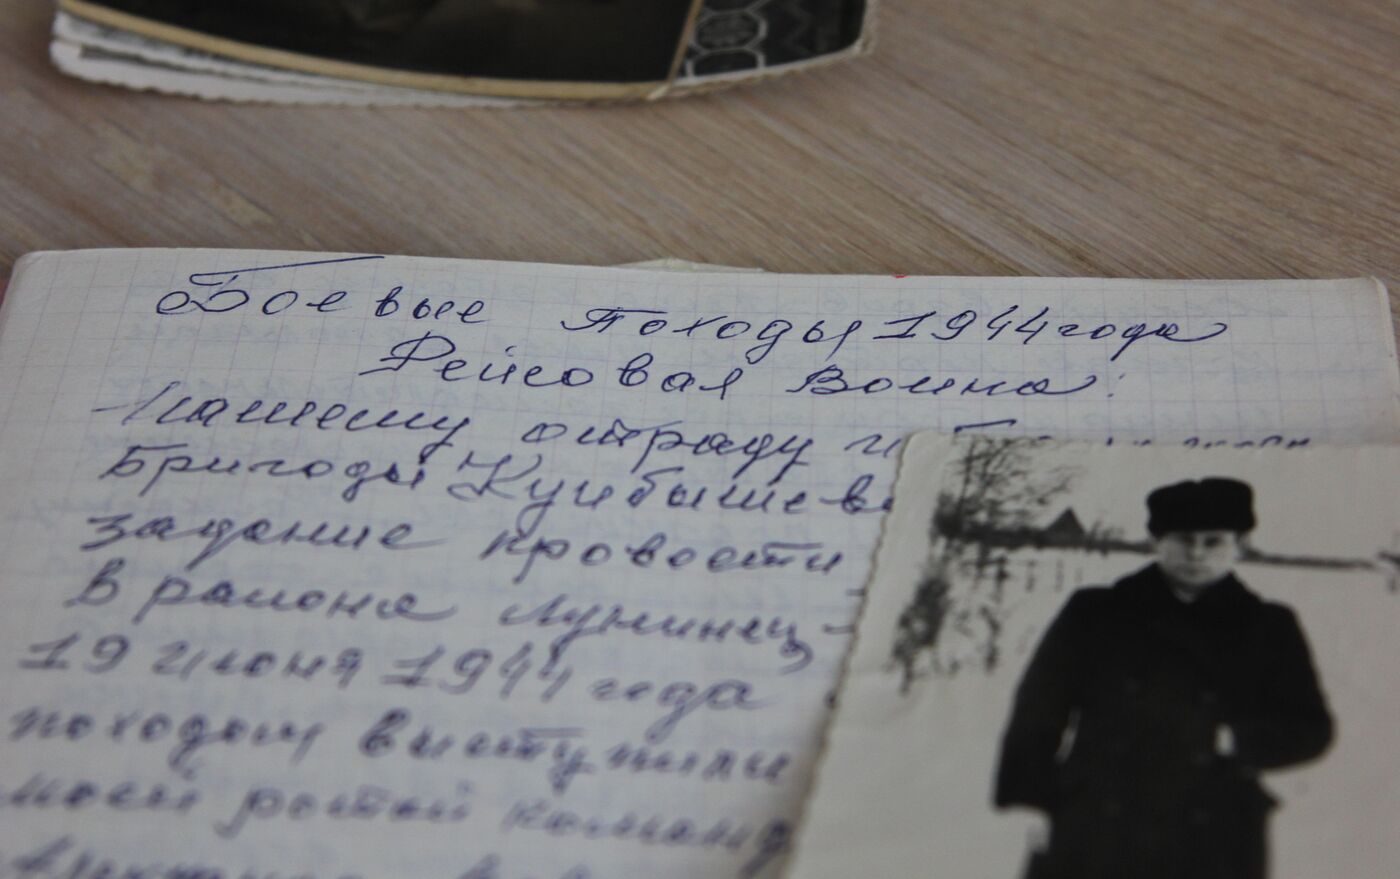 Боевые Походы 1944 года
Рейсовая Воина:
Нашему отряду и
Бригады Куйбышева
задание провости
в районе Лунинец-
19 июня 1944 года
походом выступили
моей ротой команд